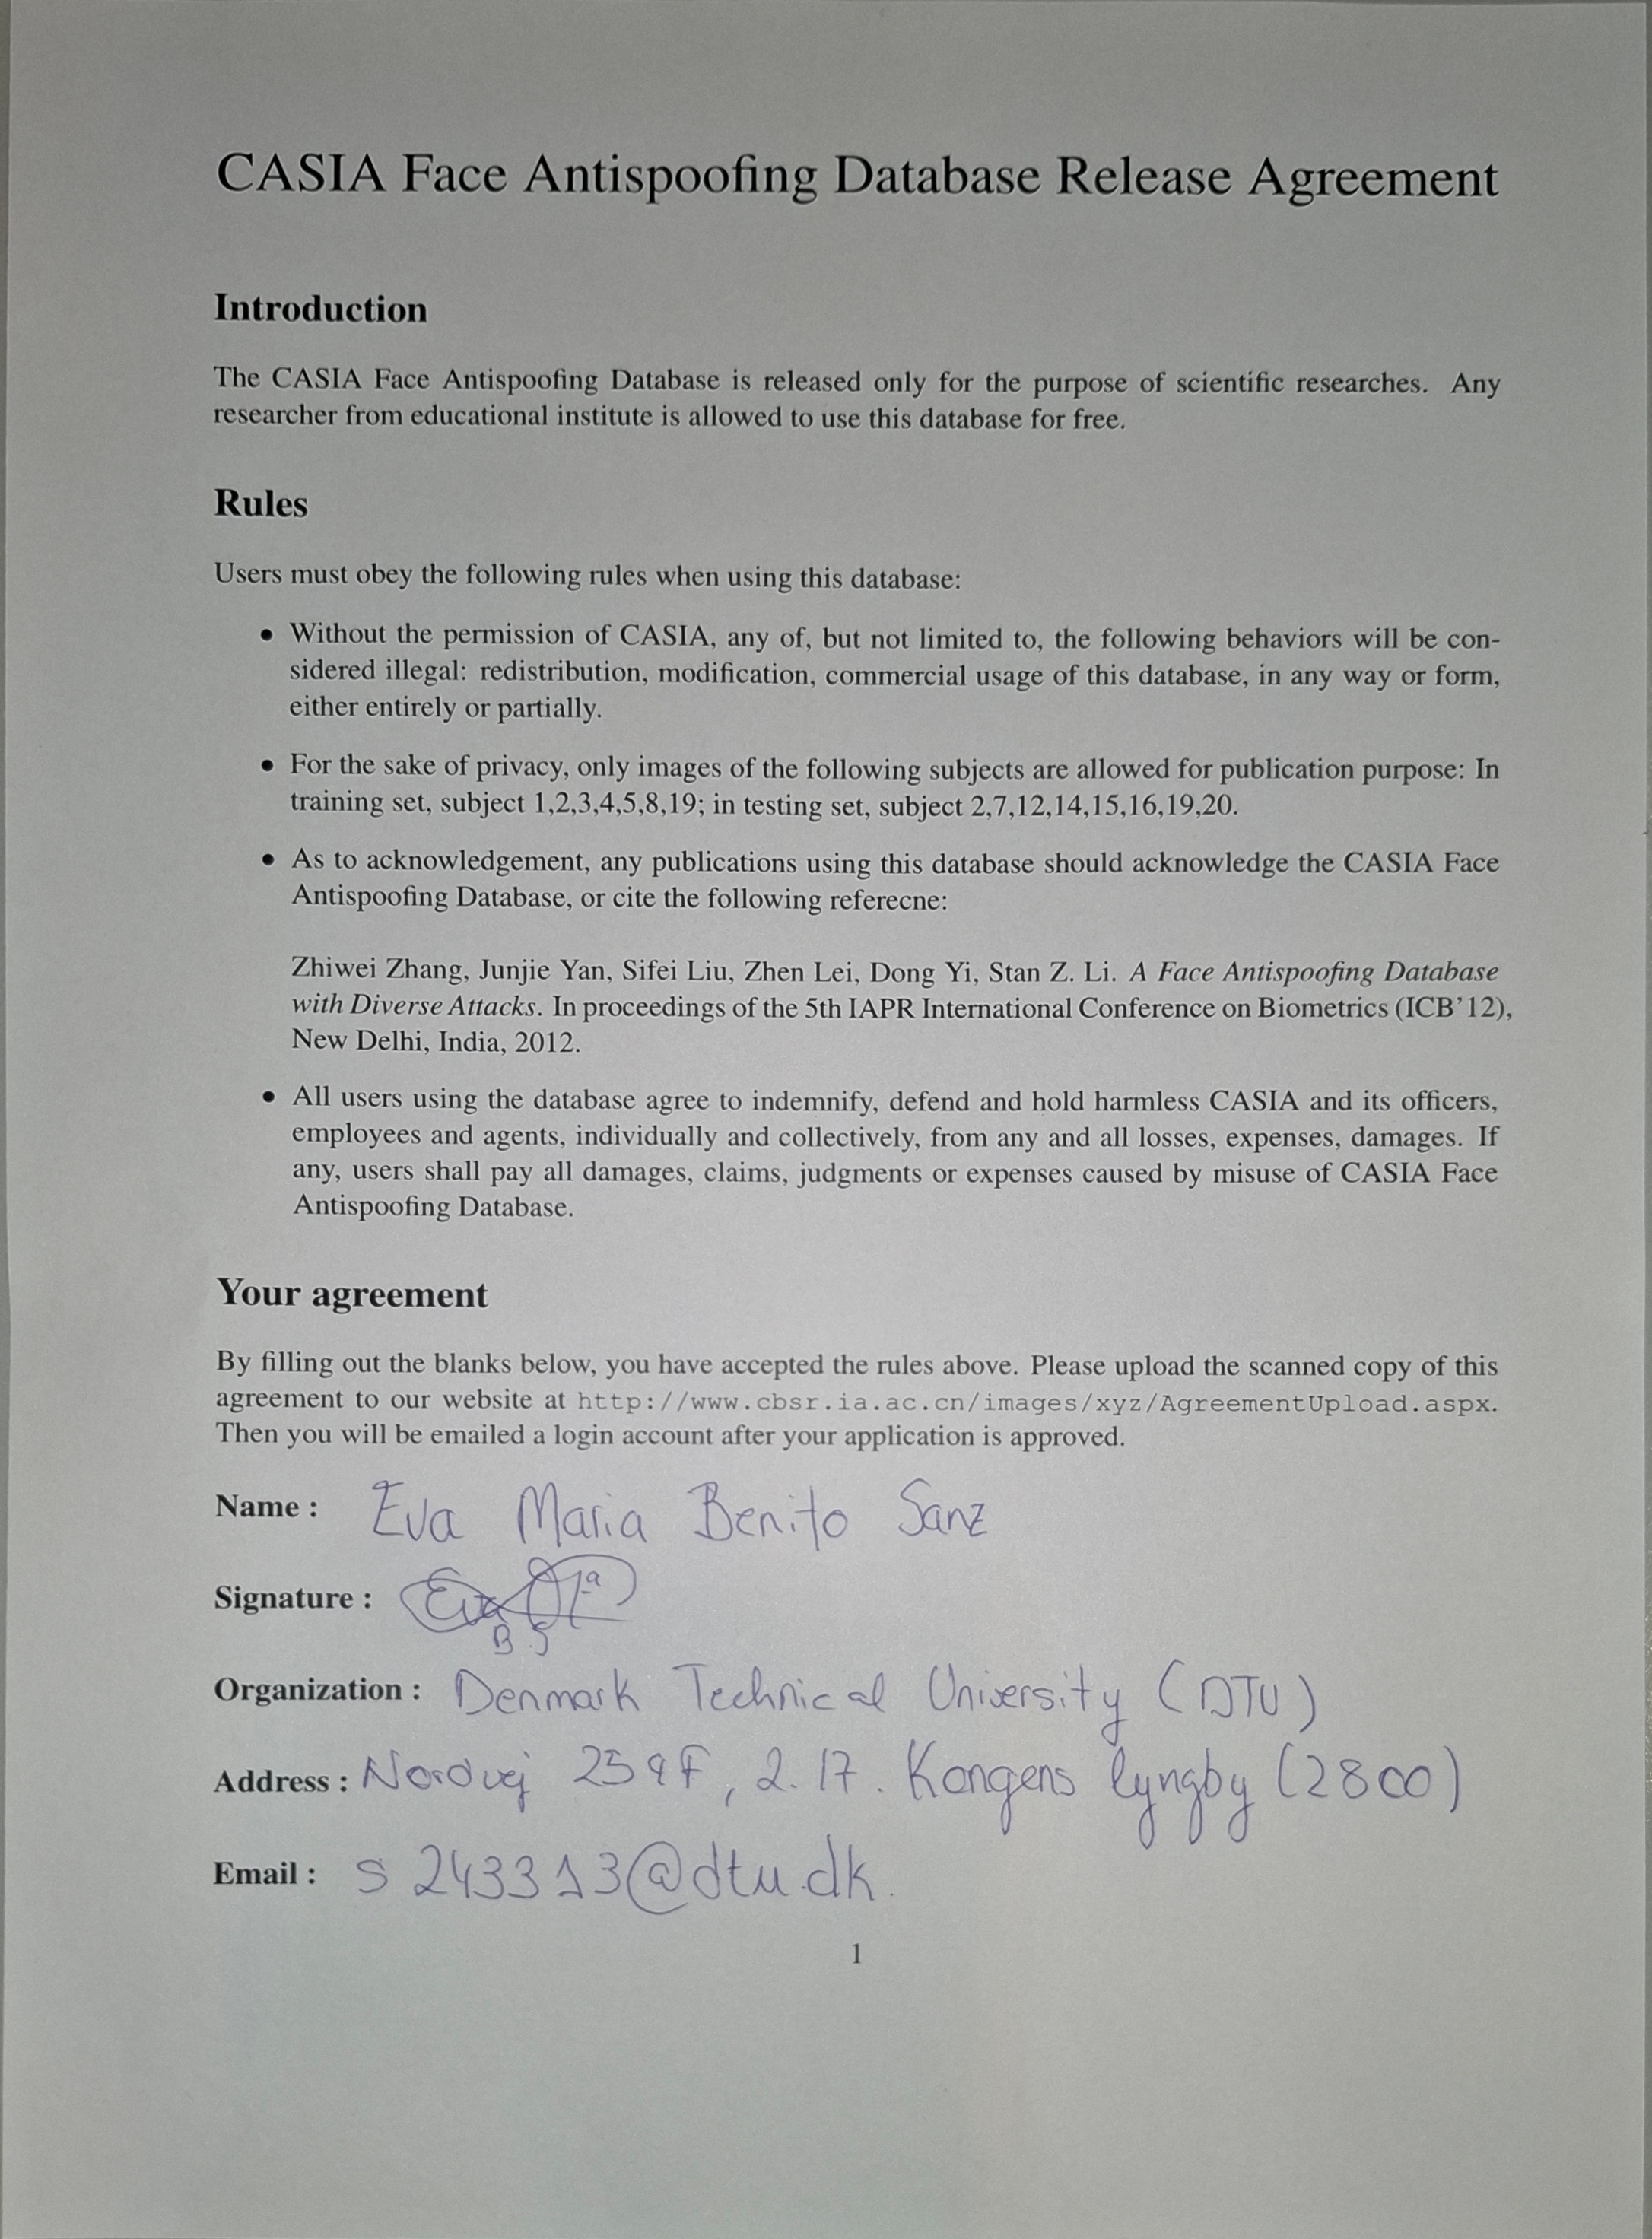 CASIA Face Antispoofing Database Release Agreement
Introduction
The CASIA Face Antispoofing Database is released only for the purpose of scientific researches. Any
researcher from educational institute is allowed to use this database for free.
Rules
Users must obey the following rules when using this database:
• Without the permission of CASIA, any of, but not limited to, the following behaviors will be con-
sidered illegal: redistribution, modification, commercial usage of this database, in any way or form,
either entirely or partially.
• For the sake of privacy, only images of the following subjects are allowed for publication purpose: In
training set, subject 1,2,3,4,5,8,19; in testing set, subject 2,7,12,14,15,16,19,20.
• As to acknowledgement, any publications using this database should acknowledge the CASIA Face
Antispoofing Database, or cite the following referecne:
Zhiwei Zhang, Junjie Yan, Sifei Liu, Zhen Lei, Dong Yi, Stan Z. Li. A Face Antispoofing Database
with Diverse Attacks. In proceedings of the 5th IAPR International Conference on Biometrics (ICB'12),
New Delhi, India, 2012.
• All users using the database agree to indemnify, defend and hold harmless CASIA and its officers,
employees and agents, individually and collectively, from any and all losses, expenses, damages. If
any, users shall pay all damages, claims, judgments or expenses caused by misuse of CASIA Face
Antispoofing Database.
Your agreement
By filling out the blanks below, you have accepted the rules above. Please upload the scanned copy of this
agreement to our website at http://www.cbsr.ia.ac.cn/images/xyz/AgreementUpload.aspx.
Then you will be emailed a login account after your application is approved.
Name : Eva Maria Benito Sanz
Signature : Eva Mª
B S
Organization : Denmark Technical University (DTU)
Address : Nordvej 259F, 2.17. Kongens lyngby (2800)
Email : s243313@dtu.dk.
1